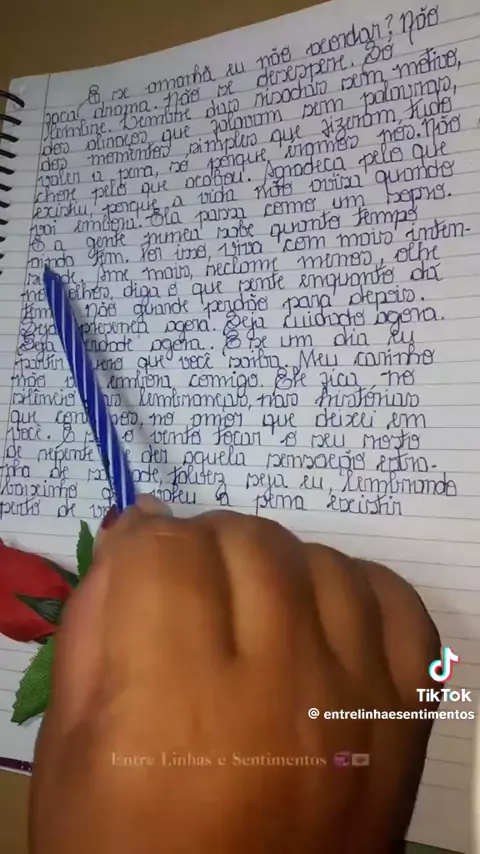 E se amanhã eu não acordar? Não
faça drama. Não se desespere. Só
lembre. Lembre das risadas sem motivo,
dos olhares que falavam sem palavras,
dos momentos simples que fizeram tudo
valer a pena, só porque éramos nós. Não
chore pelo que acabou. Agradeça pelo que
existiu, porque a vida não avisa quando
vai embora. Ela passa como um sopro.
E a gente nunca sabe quanto tempo
ainda tem. Por isso, viva com mais inten-
me mais, reclame menos, olhe
diga o que sente enquanto dá
não guarde perdão para depois.
Seja presença agora. Seja cuidado agora.
Seja agora. E se um dia eu
partir que você saiba. Meu carinho
não embora comigo. Ele fica no
silêncio lembranças, nas histórias
que no amor que deixei em
você. E o vento tocar o seu rosto
de repente e der aquela sensação estra-
nha de talvez seja eu, lembrando
baixinho a pena existir
perto de
TikTok
@ entrelinhaesentimentos
Entre Linhas e Sentimentos